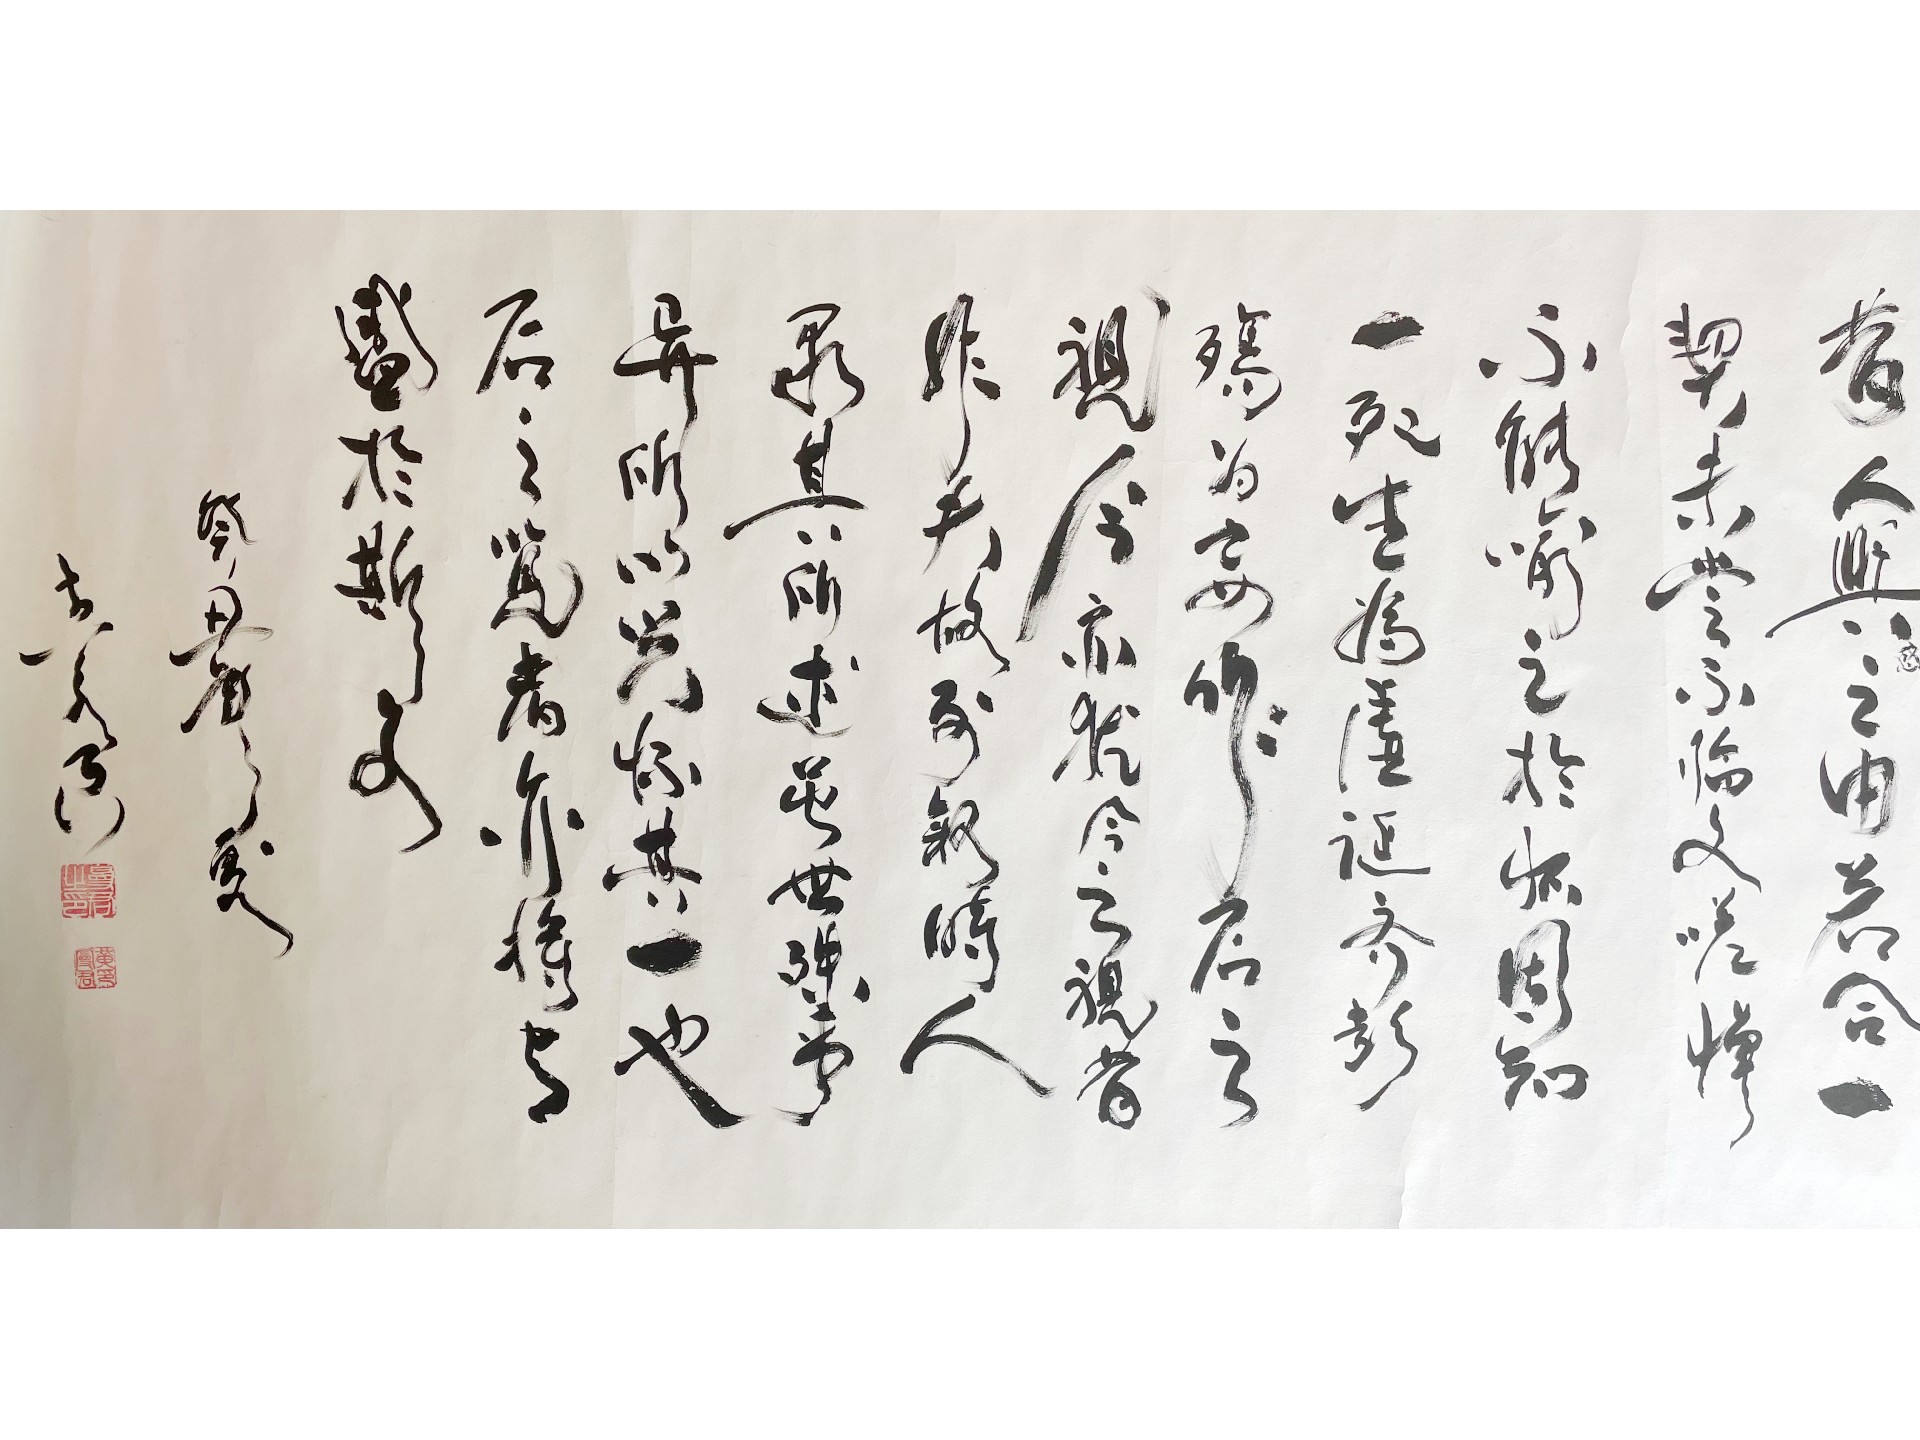 昔人興感之由若合一
契未嘗不臨文嗟悼
不能喻之於怀固知
一死生為虛誕齐彭
殤为妄作后之
視今亦犹今之視昔
悲夫故列叙時人
录其所述虽世殊事
异所以兴怀其一也
后之覽者亦将有
感於斯文